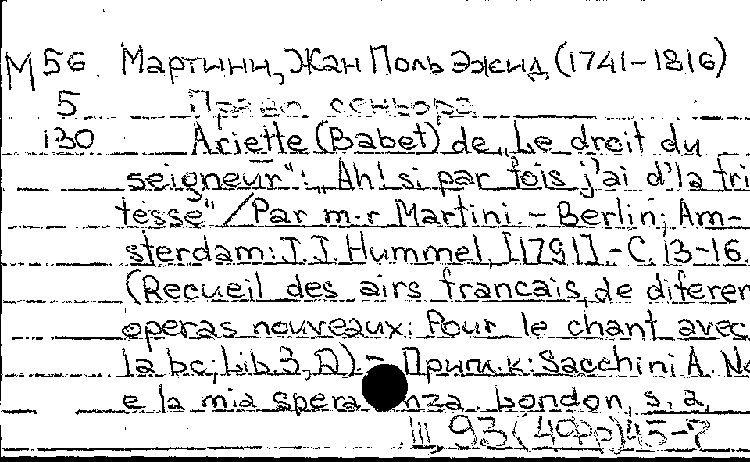 М 56 Мартини, Жан Поль Эжид (1741-1816)
5 Право сеньора
130 Ariette (Babet) de „Le droit du
seigneur": „Ah! si par fois j'ai d'la tri
tesse" / Par m-r Martini. - Berlin; Am-
sterdam: J. J. Hummel, [1791]. - C. 13-16.
(Recueil des airs francais, de diferen
operas nouveaux: Pour le chant avec
la bc; Lib. 3, ). - Прил. к: Sacchini A. No
e la mia spera nza. London, s. a,
III, 93 (49 ) 45-7